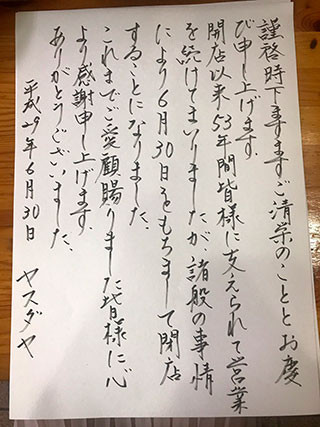 謹啓時下ますますご清栄のこととお慶
び申し上げます。
開店以来53年間皆様に支えられて営業
を続けてまいりましたが、諸般の事情
により6月30日をもちまして閉店
することになりました。
これまでご愛顧賜りました皆様に心
より感謝申し上げます。
ありがとうございました。
平成29年6月30日 ヤスダヤ